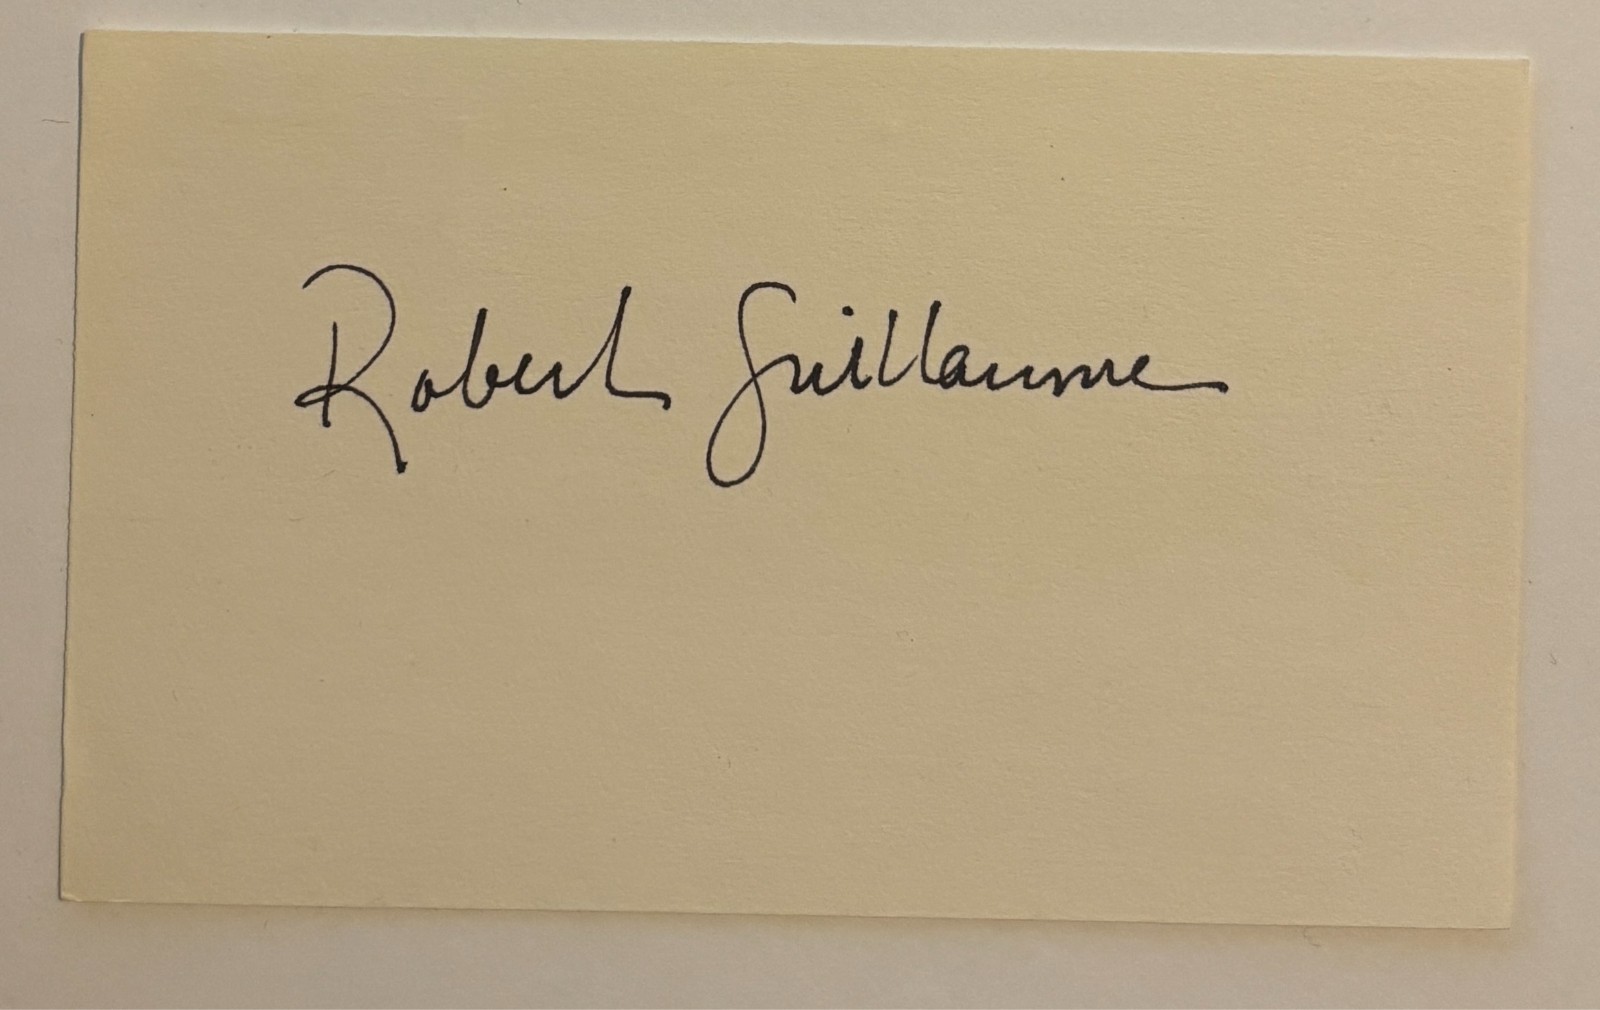 Robert Guillaume